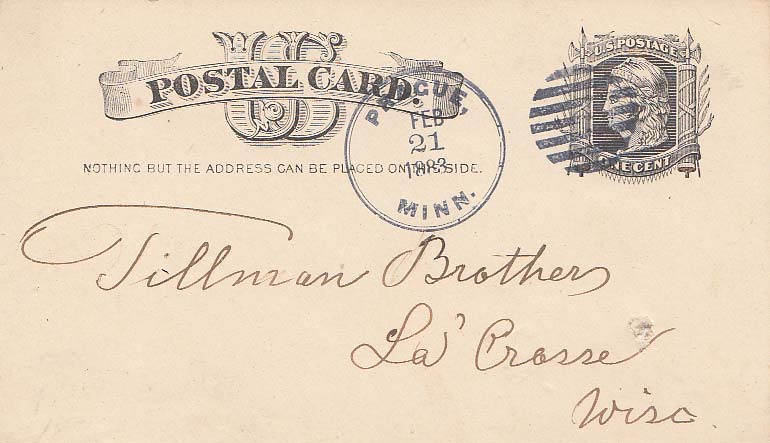 US
POSTAL CARD.
NOTHING BUT THE ADDRESS CAN BE PLACED ON THIS SIDE.
U.S. POSTAGE
ONE CENT
PRAGUE,
FEB
21
1883
MINN.
Tillman Brothers
La' Crosse
Wisc.